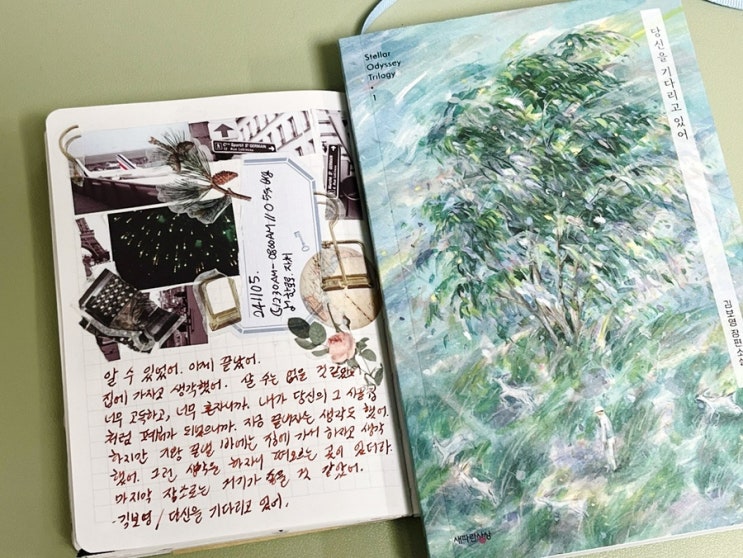 Stellar
Odyssey
Trilogy
1
당신을 기다리고 있어
김보영 장편소설
새파란상상
ST GERMAIN
241105.
알 수 있었어. 이제 끝났어.
집에 가자고 생각했어. 살 수는 없을 것 같았어.
너무 고독하고, 너무 혼자니까. 내가 당신의 그 사공
처럼 고래가 되었으니까. 지금 끝내자는 생각도 했어.
하지만 기왕 끝낼 바에는 집에 가서 하자고 생각
했어. 그런 생각을 하자니 떠오르는 곳이 있더라.
마지막 장소로는 거기가 좋을 것 같았어.
-김보영 / 당신을 기다리고 있어.